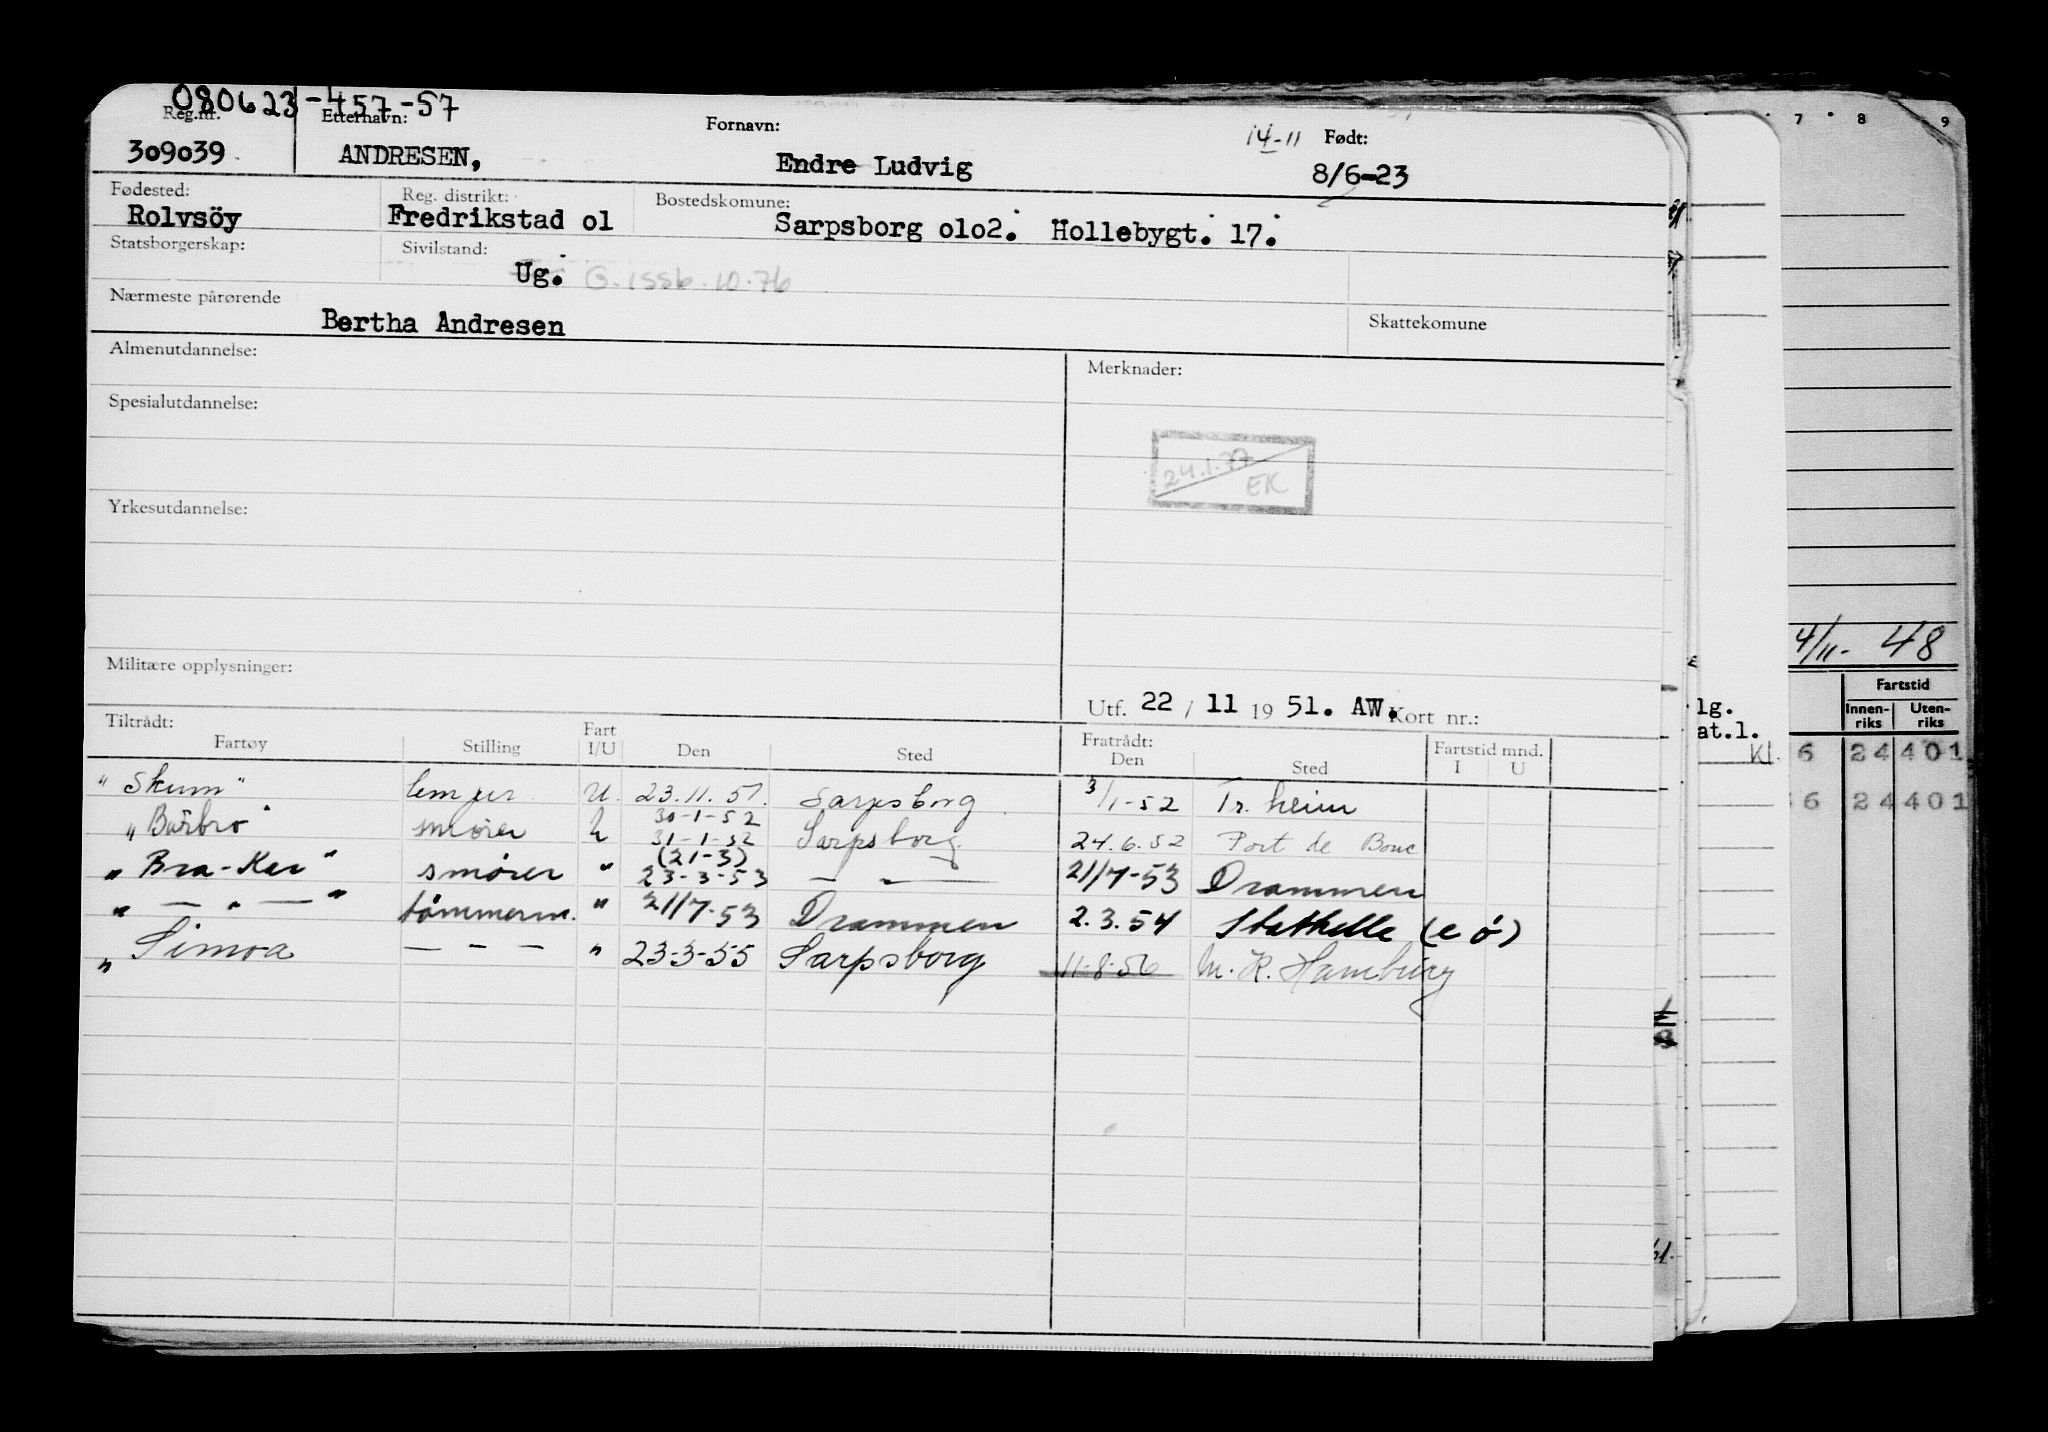 080623-457-57
Reg.nr. Etternavn: Fornavn: 14-11 Født:
309039 ANDRESEN, Endre Ludvig 8/6-23
Fødested: Reg. distrikt: Bostedskomune:
Rolvsöy Fredrikstad o1 Sarpsborg o1o2. Hollebygt. 17.
Statsborgerskap: Sivilstand:
Ug. G. 1556.10.76
Nærmeste pårørende
Bertha Andresen Skattekomune
Almenutdannelse: Merknader:
Spesialutdannelse:
24.1.77
EK
Yrkesutdannelse:
Militære opplysninger:
Utf. 22 / 11 19 51. AW. Kort nr.:
Tiltrådt: Fratrådt:
Fartøy Stilling Fart I/U Den Sted Den Sted Fartstid mnd. I U
"Skum" lemper U. 23.11.51. Sarpsborg 3/1-52 Tr.heim
30-1-52
"Barbro" smører U 31-1-52 Sarpsborg 24.6.52 Port de Bouc
(21-3)
"Bra-Kar" smører " 23-3-53 — " — 21/7-53 Drammen
" — " — " tömmerm. " 21/7-53 Drammen 2.3.54 Stathelle (e ö)
" Simoa — " — " 23-3-55 Sarpsborg 11-8-56 M. K. Hamburg
7 8 9
4/11- 48
Fartstid
Innen-riks Uten-riks
lg.
at.l.
Kl. 6 24 401
6 24 401